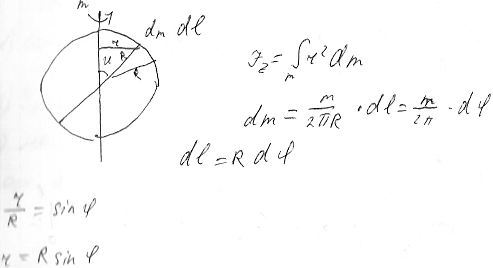 m
dm dl
r
φ R R
J_z = ∫_m r² dm
dm = m/2πR · dl = m/2π · dφ
dl = R dφ
r/R = sin φ
r = R sin φ